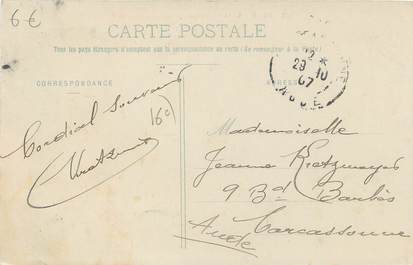 6€
CARTE POSTALE
Tous les pays étrangers n'acceptent pas la correspondance au recto (Se renseigner à la Poste)
CORRESPONDANCE
29 - 10
07
AUDE
Cordial souvenir
160
Mademoiselle
Jeanne
9 Bd Barbès
Carcassonne
Aude